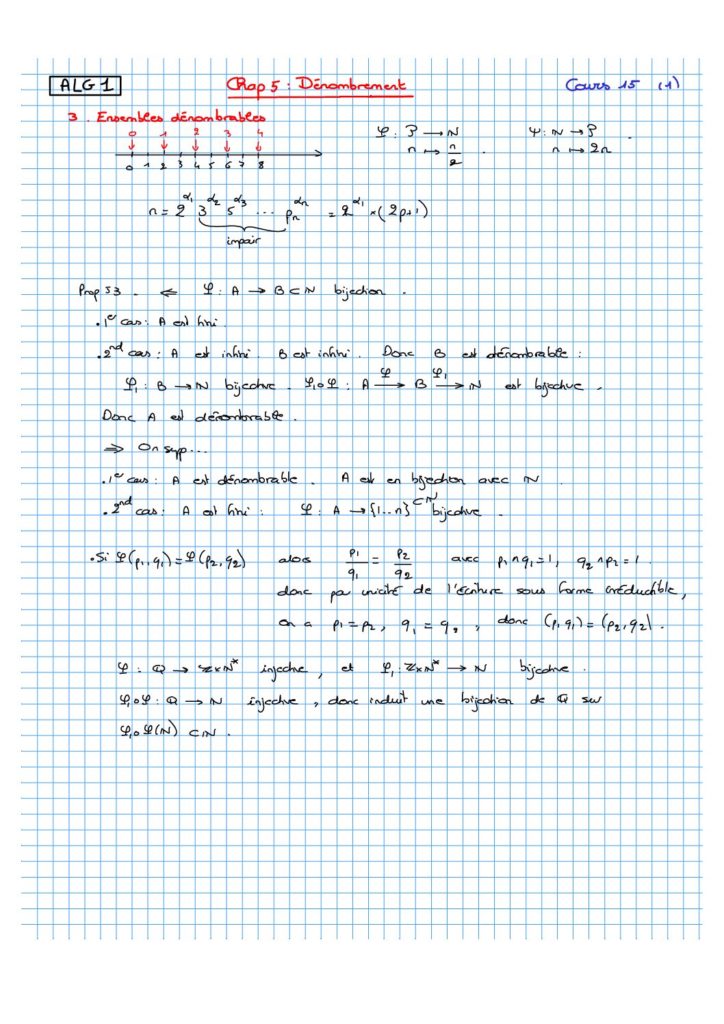 ALG 1 Chap 5 : Dénombrement Cours 15 (1)
3. Ensembles dénombrables
0 1 2 3 4
0 1 2 3 4 5 6 7 8
φ : P → N
n ↦ n/2 .
ψ : N → P .
n ↦ 2n
n = 2^α1 3^α2 5^α3 ... pn^αn = 2^α1 × (2p+1)
impair
Prop 53 . ⇐ φ : A → B ⊂ N bijection .
. 1er cas : A est fini .
. 2nd cas : A est infini . B est infini . Donc B est dénombrable :
φ1 : B → N bijective . φ1 o φ : A —φ→ B —φ1→ N est bijective .
Donc A est dénombrable .
⇒ On supp...
. 1er cas : A est dénombrable . A est en bijection avec N .
. 2nd cas : A est fini : φ : A → {1...n} ⊂ N bijective .
. Si φ(p1,q1) = φ(p2,q2) alors p1/q1 = p2/q2 avec p1∧q1=1, q2∧p2=1 .
donc par unicité de l'écriture sous forme irréductible,
on a p1=p2, q1=q2, donc (p1,q1)=(p2,q2).
φ : Q → Z×N* injective, et φ1 : Z×N* → N bijective .
φ1 o φ : Q → N injective, donc induit une bijection de Q sur
φ1 o φ(N) ⊂ N .